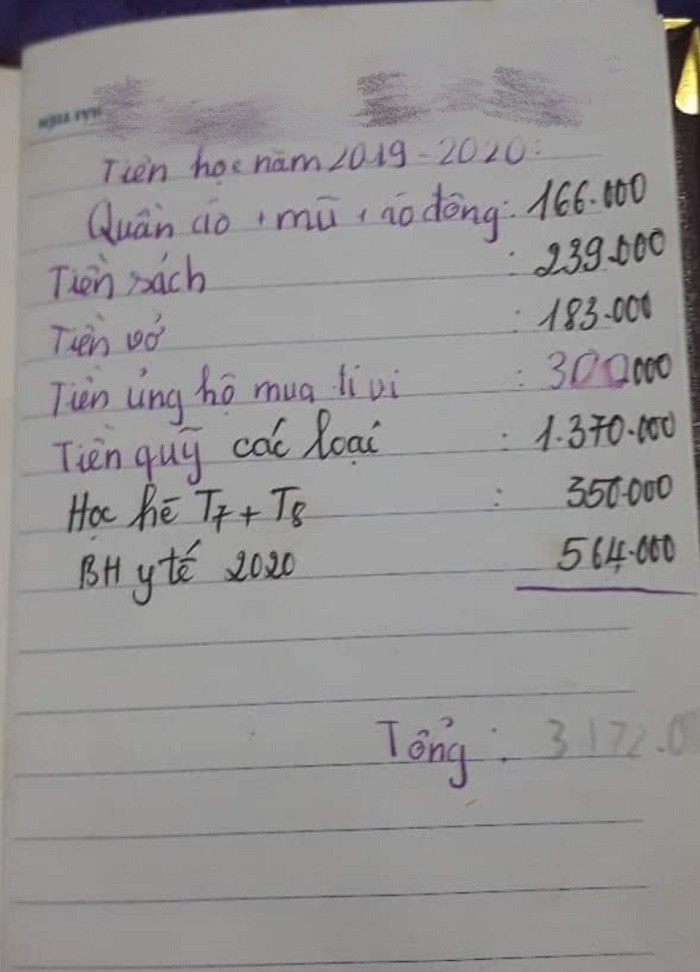 Tiền học năm 2019-2020:
Quần áo + mũ + áo đông: 166.000
Tiền sách : 239.000
Tiền vở : 183.000
Tiền ủng hộ mua ti vi : 300.000
Tiền quỹ các loại : 1.370.000
Học hè T7 + T8 : 350.000
BH y tế 2020 564.000
Tổng : 3172.0